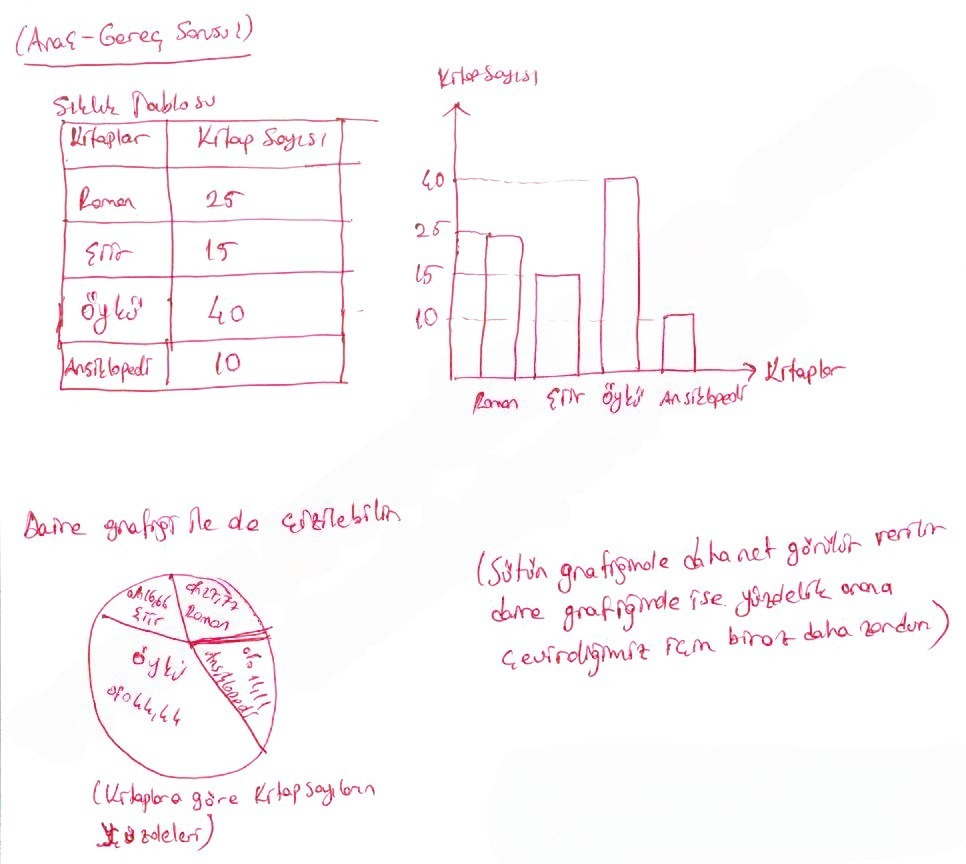 (Araç-Gereç Sorusu!)
Sıklık Tablosu
Kitaplar Kitap Sayısı
Roman 25
Şiir 15
Öykü 40
Ansiklopedi 10
Kitap sayısı
40
25
15
10
Kitaplar
Roman Şiir Öykü Ansiklopedi
Daire grafiği ile de çizilebilir
%16,66
Şiir
%27,77
Roman
Öykü
%44,44
%11,11
Ansiklopedi
(Kitaplara göre Kitap sayıların
yüzdeleri)
(Sütün grafiğinde daha net görülür verilir
daire grafiğinde ise yüzdelik orana
çevirdiğimiz için biraz daha zordur)